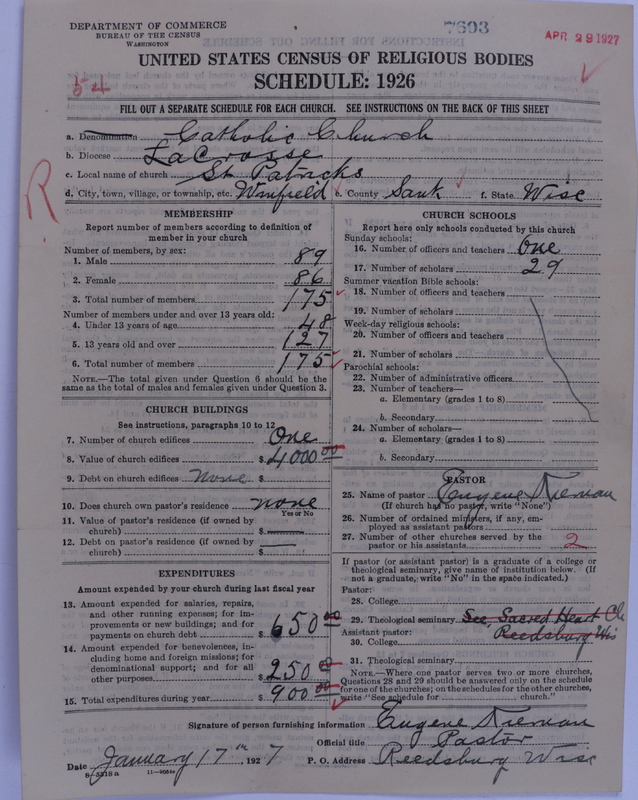 DEPARTMENT OF COMMERCE
BUREAU OF THE CENSUS
WASHINGTON
7603
APR 29 1927
UNITED STATES CENSUS OF RELIGIOUS BODIES
SCHEDULE: 1926
54
FILL OUT A SEPARATE SCHEDULE FOR EACH CHURCH. SEE INSTRUCTIONS ON THE BACK OF THIS SHEET
a. Denomination Catholic Church
b. Diocese LaCrosse
c. Local name of church St Patricks
d. City, town, village, or township, etc. Winfield e. County Sauk f. State Wisc
R
MEMBERSHIP
Report number of members according to definition of
member in your church
Number of members, by sex:
1. Male 89
2. Female 86
3. Total number of members 175
Number of members under and over 13 years old:
4. Under 13 years of age 48
5. 13 years old and over 127
6. Total number of members 175
NOTE.—The total given under Question 6 should be
same as the total of males and females given under Question 3.
CHURCH BUILDINGS
See instructions, paragraphs 10 to 12
7. Number of church edifices One
8. Value of church edifices $ 4000 00
9. Debt on church edifices none $
10. Does church own pastor's residence none
Yes or No
11. Value of pastor's residence (if owned by
church) $
12. Debt on pastor's residence (if owned by
church) $
EXPENDITURES
Amount expended by your church during last fiscal year
13. Amount expended for salaries, repairs,
and other running expenses; for im-
provements or new buildings; and for
payments on church debt $ 650 00
14. Amount expended for benevolences, in-
cluding home and foreign missions; for
denominational support; and for all
other purposes $ 250 00
15. Total expenditures during year $ 900 00
CHURCH SCHOOLS
Report here only schools conducted by this church
Sunday schools:
16. Number of officers and teachers One
17. Number of scholars 29
Summer vacation Bible schools:
18. Number of officers and teachers
19. Number of scholars
Week-day religious schools:
20. Number of officers and teachers
21. Number of scholars
Parochial schools:
22. Number of administrative officers
23. Number of teachers—
a. Elementary (grades 1 to 8)
b. Secondary
24. Number of scholars—
a. Elementary (grades 1 to 8)
b. Secondary
PASTOR
25. Name of pastor Eugene Nieman
(If church has no pastor, write "None")
26. Number of ordained ministers, if any, em-
ployed as assistant pastors
27. Number of other churches served by the
pastor or his assistants 2
If pastor (or assistant pastor) is a graduate of a college or
theological seminary, give name of institution below. (If
not a graduate, write "No" in the space indicated.)
Pastor:
28. College
29. Theological seminary See Sacred Heart Ch
Assistant pastor: Reedsburg Wis
30. College
31. Theological seminary
NOTE.—Where one pastor serves two or more churches,
Questions 28 and 29 should be answered only on the schedule
for one of the churches; on the schedules for the other churches,
write "See schedule for church."
Signature of person furnishing information Eugene Nieman
Official title Pastor
Date January 17th, 1927 P. O. Address Reedsburg Wisc